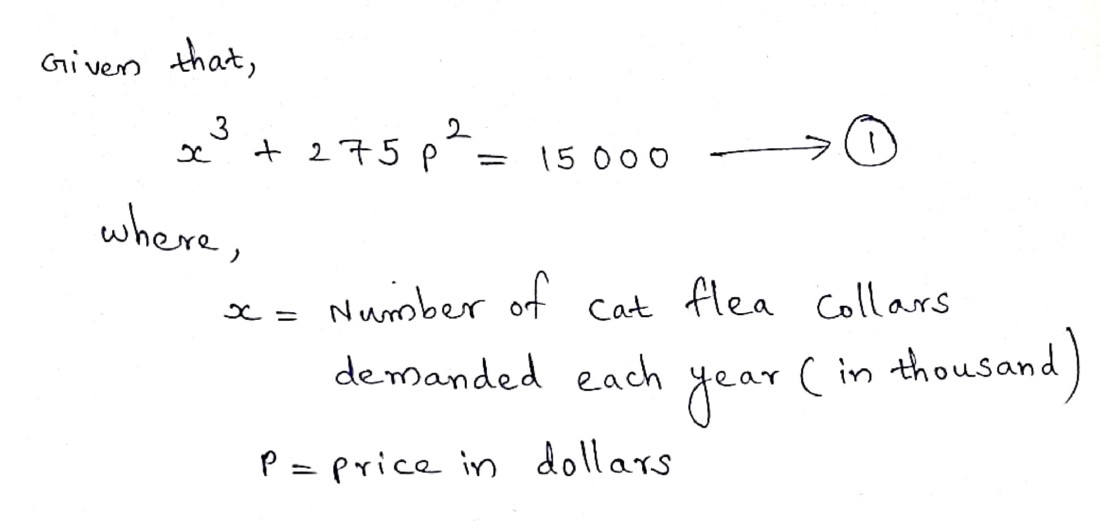 Given that,
x³ + 275 p² = 15000 ⟶ ①
where,
x = Number of cat flea collars
demanded each year (in thousand)
P = price in dollars